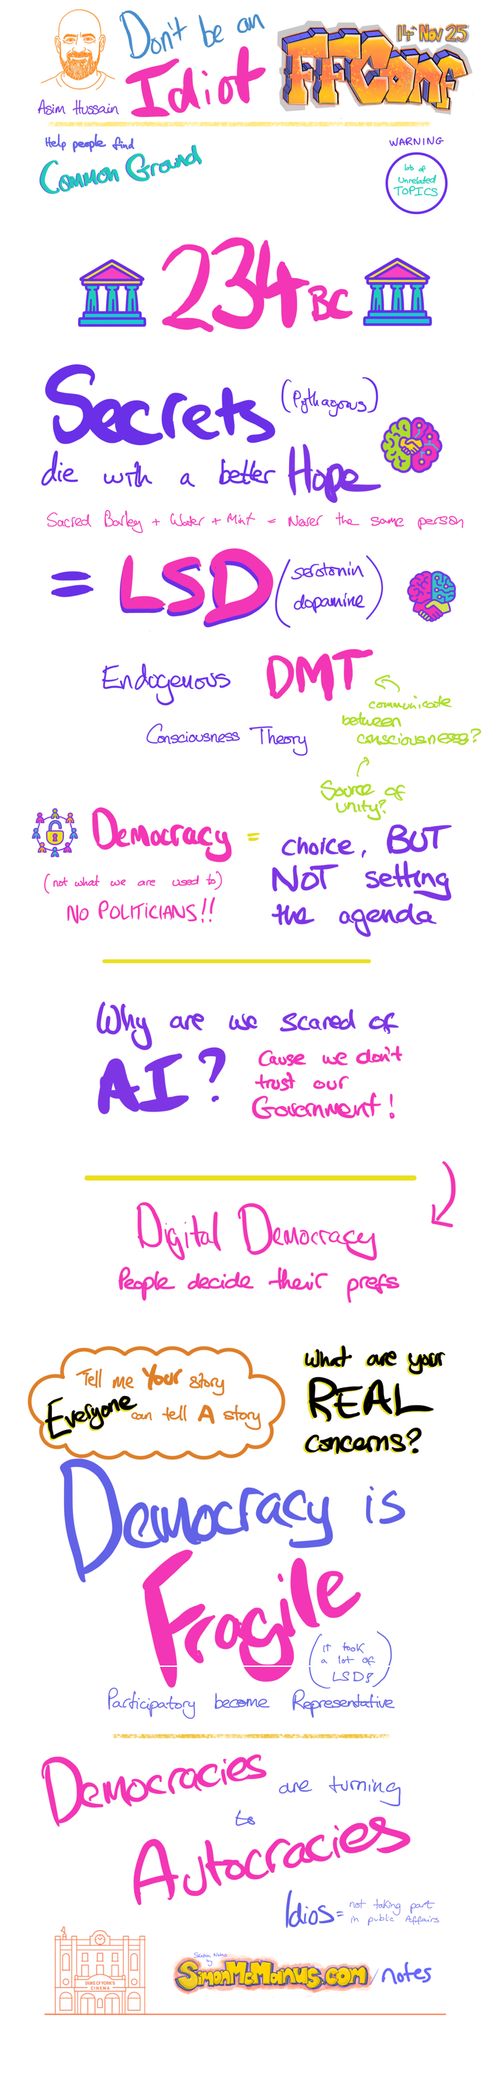 Don't be an
Idiot
14th Nov 25
FFConf
Asim Hussain
Help people find
Common Ground
WARNING
lots of
unrelated
TOPICS
234 BC
Secrets (Pythagoras)
die with a better Hope
Sacred Barley + Water + Mint = Never the same person
= LSD (serotonin
dopamine)
Endogenous DMT
communicate
between
consciousness?
Consciousness Theory
Source of
unity?
Democracy = choice, BUT
NOT setting
the agenda
(not what we are used to)
NO POLITICIANS!!
Why are we scared of
AI?
Cause we don't
trust our
Government!
Digital Democracy
People decide their prefs
Tell me Your story
Everyone can tell A story
What are your
REAL
concerns?
Democracy is
Fragile
(it took
a lot of
LSD!)
Participatory become Representative
Democracies are turning
to
Autocracies
Idios = not taking part
in public Affairs
DUKE OF YORK'S
CINEMA
Sketch Notes
by
SimonMcManus.com/notes